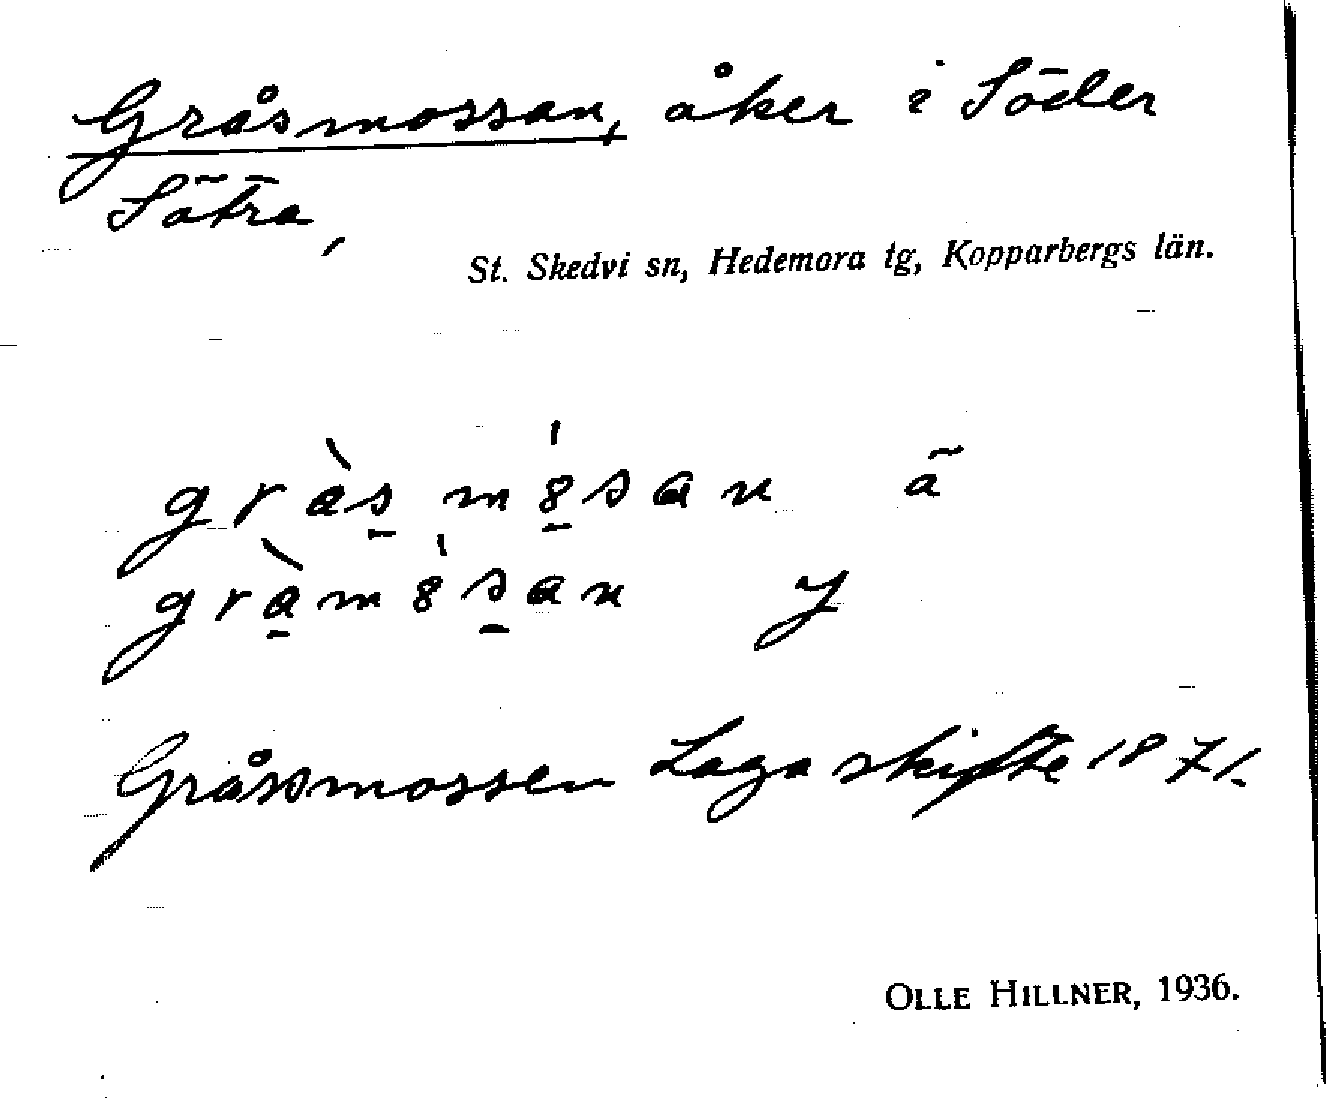 Gråsmossan, åker i Söder
Sätra,
St. Skedvi sn, Hedemora tg, Kopparbergs län.
gràs̠ m8̠́san ä
grà̠m8́s̠an y
Gråssmossen Laga skifte 1871.
OLLE HILLNER, 1936.